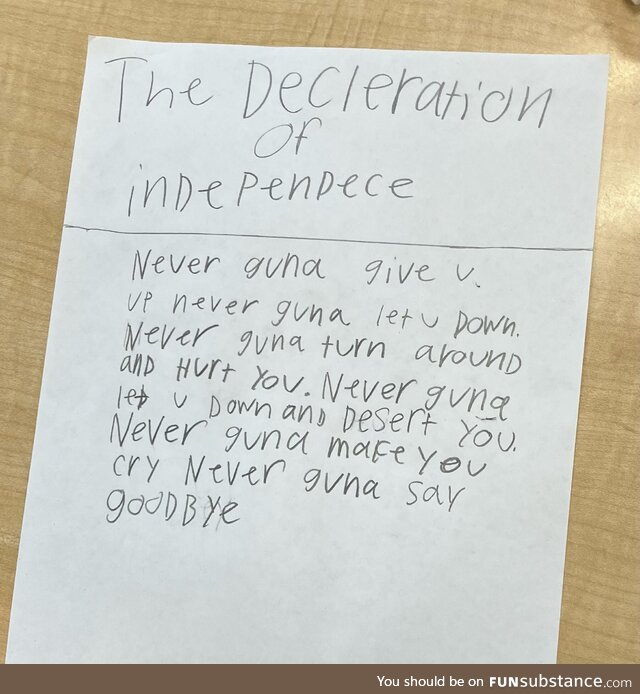 The Decleration
of
inDePenDece
Never guna give u.
up never guna let u Down.
Never guna turn around
and Hurt You. Never guna
let u Down and Desert You.
Never guna make you
cry Never guna say
gooDBye
You should be on FUNsubstance.com